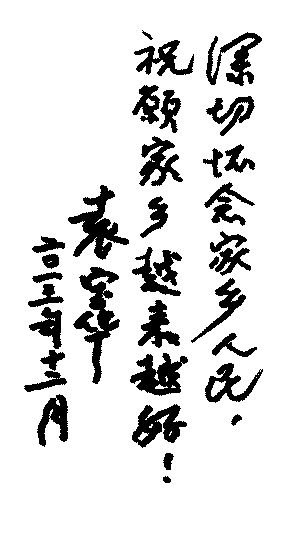 深切怀念家乡人民，
祝愿家乡越来越好！
袁宝华
二〇一三年十二月